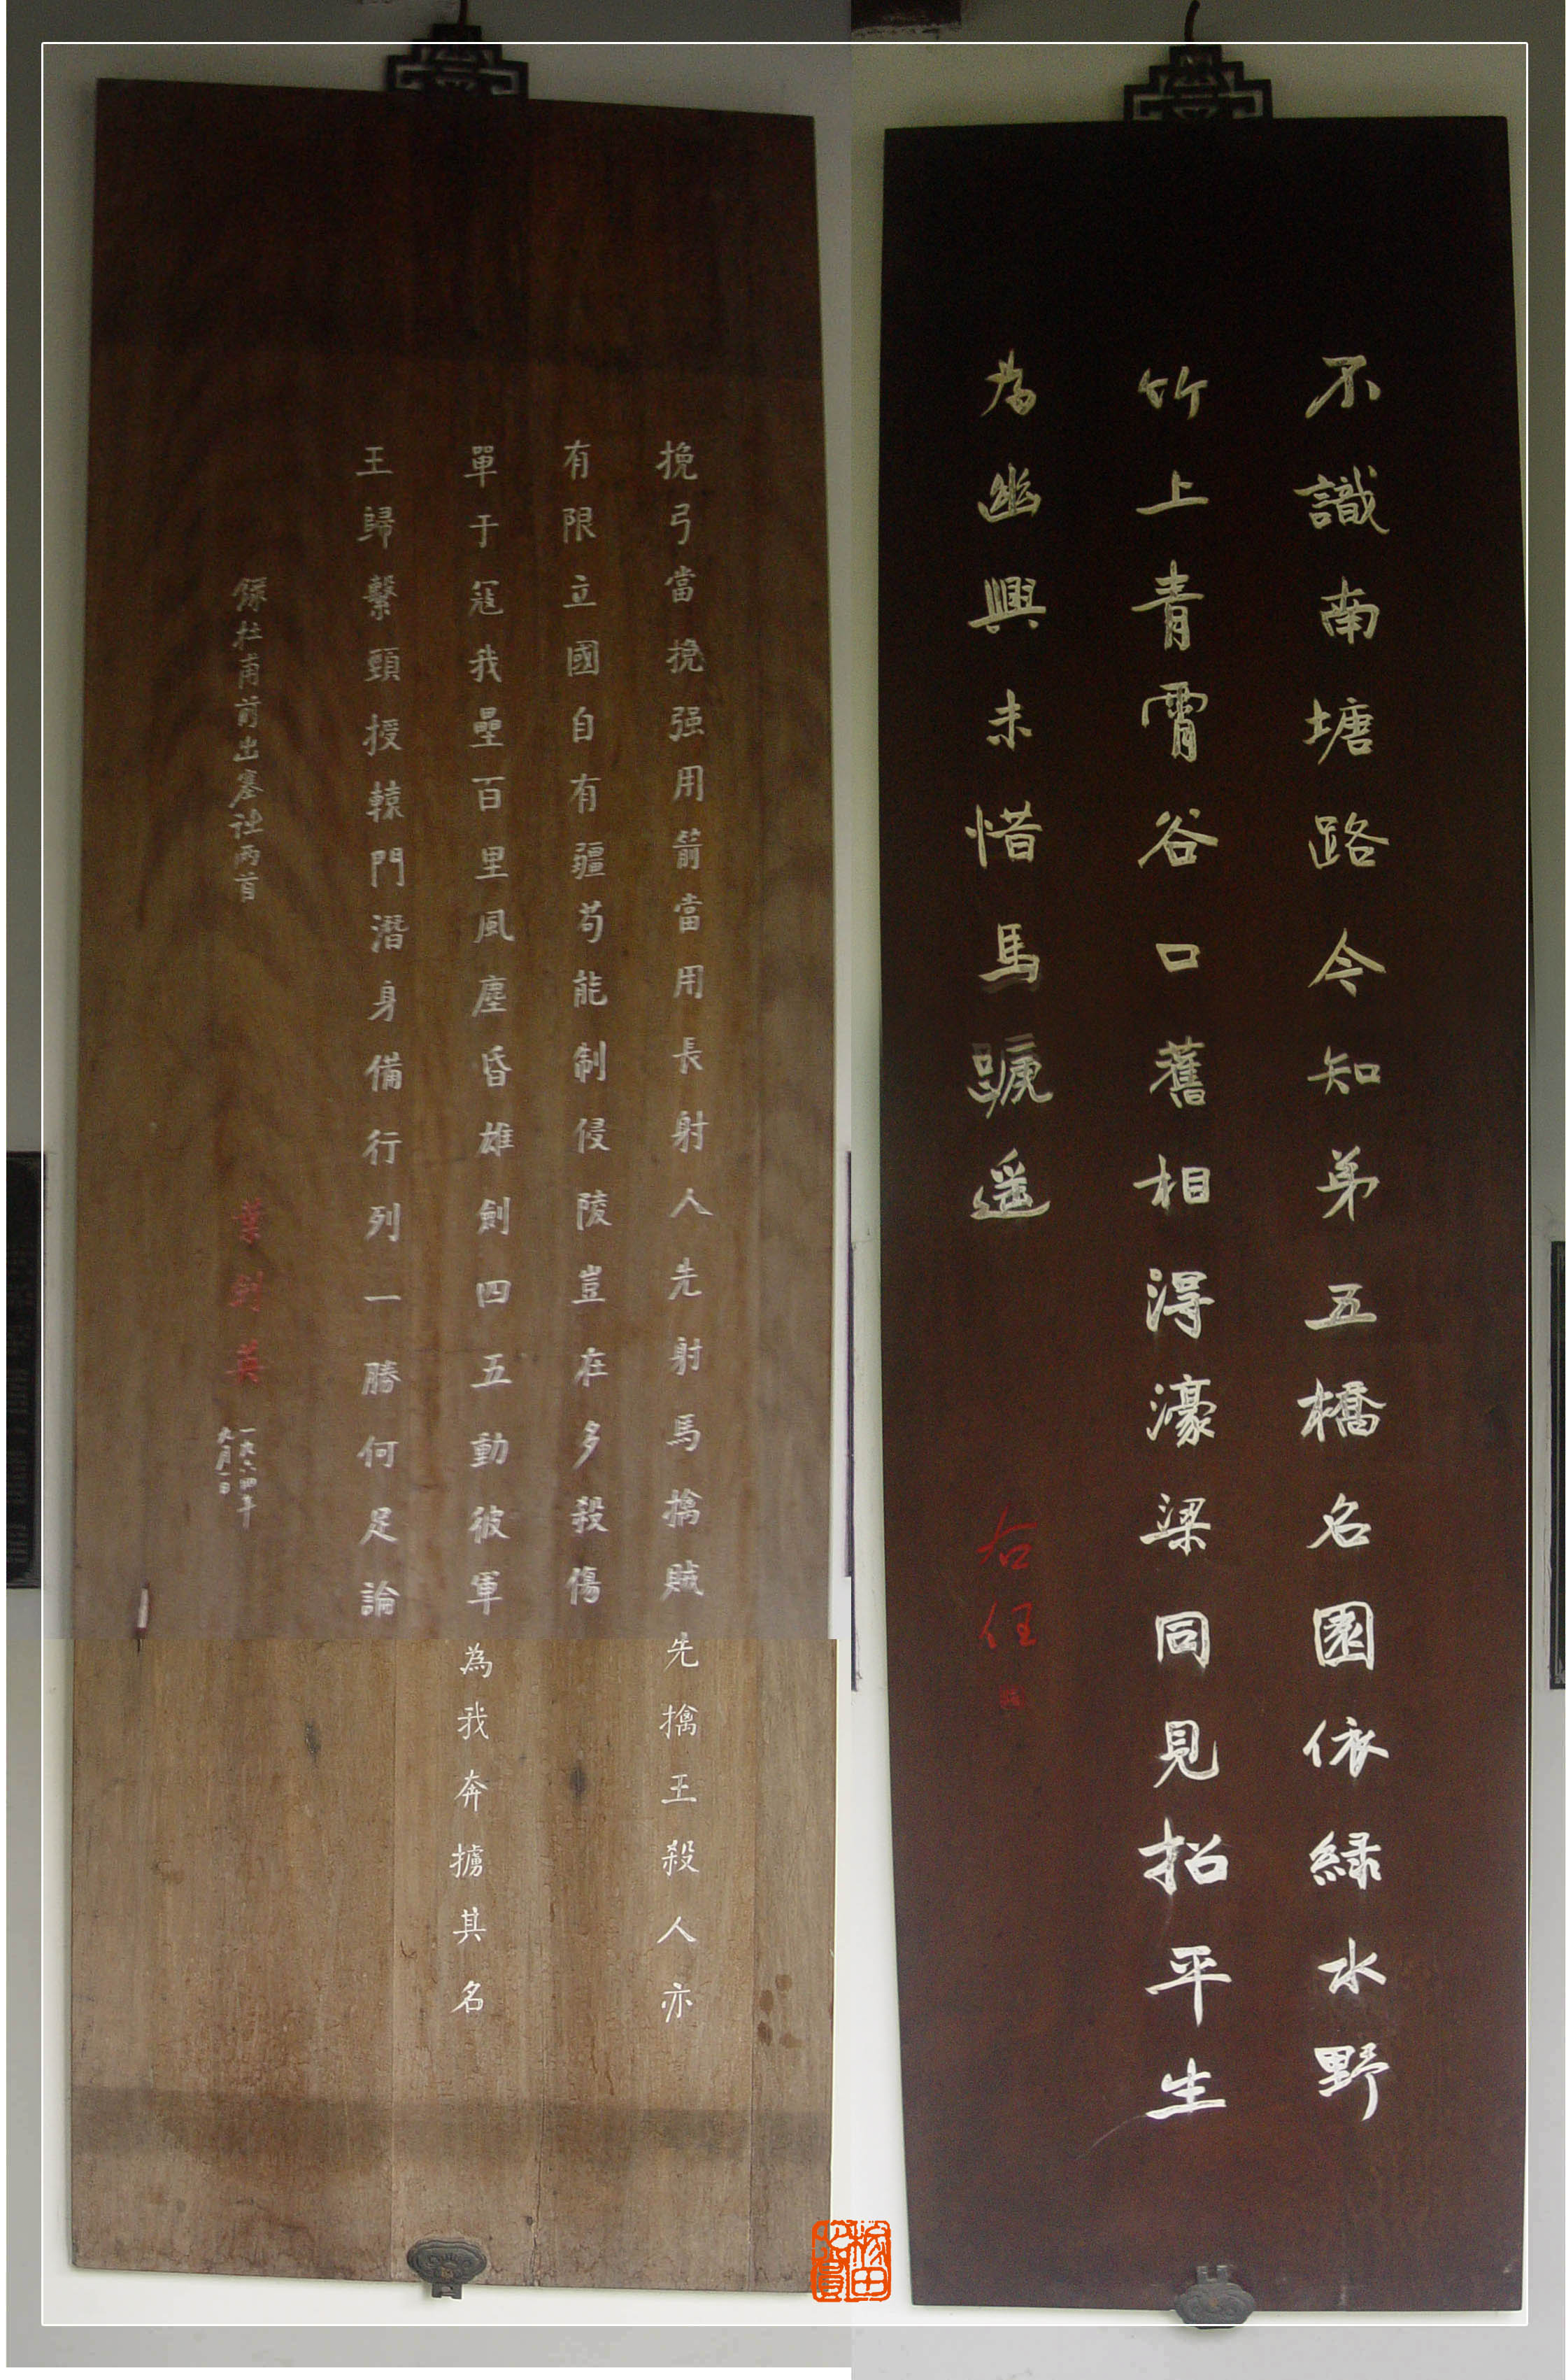 不識南塘路今知弟五橋名園依綠水野
竹上青霄谷口舊相淂濠梁同見招平生
為幽興未惜馬蹏遥
右任
挽弓當挽强用箭當用長射人先射馬擒賊先擒王殺人亦
有限立國自有疆苟能制侵陵豈在多殺傷
單于冦我壘百里風塵昏雄劍四五動彼軍為我奔擄其名
王歸繫頸授轅門潛身備行列一勝何足論
錄杜甫前出塞詩兩首
葉劍英
一九六四年
九月一日